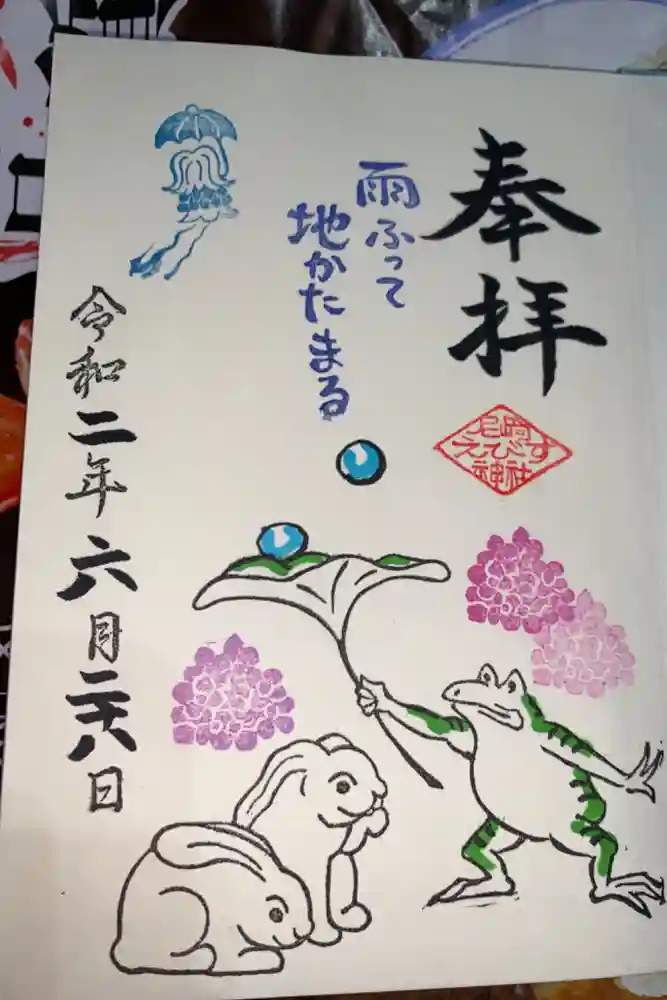 奉拝
尼崎
えびす
神社
雨ふって
地かたまる
令和二年六月二十八日